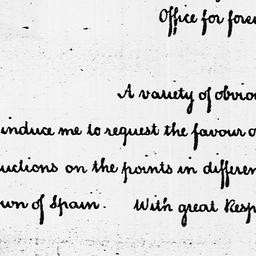 Office for fore
A variety of obvio
induce me to request the favour o
uctions on the points in differen
own of Spain. With great Resp